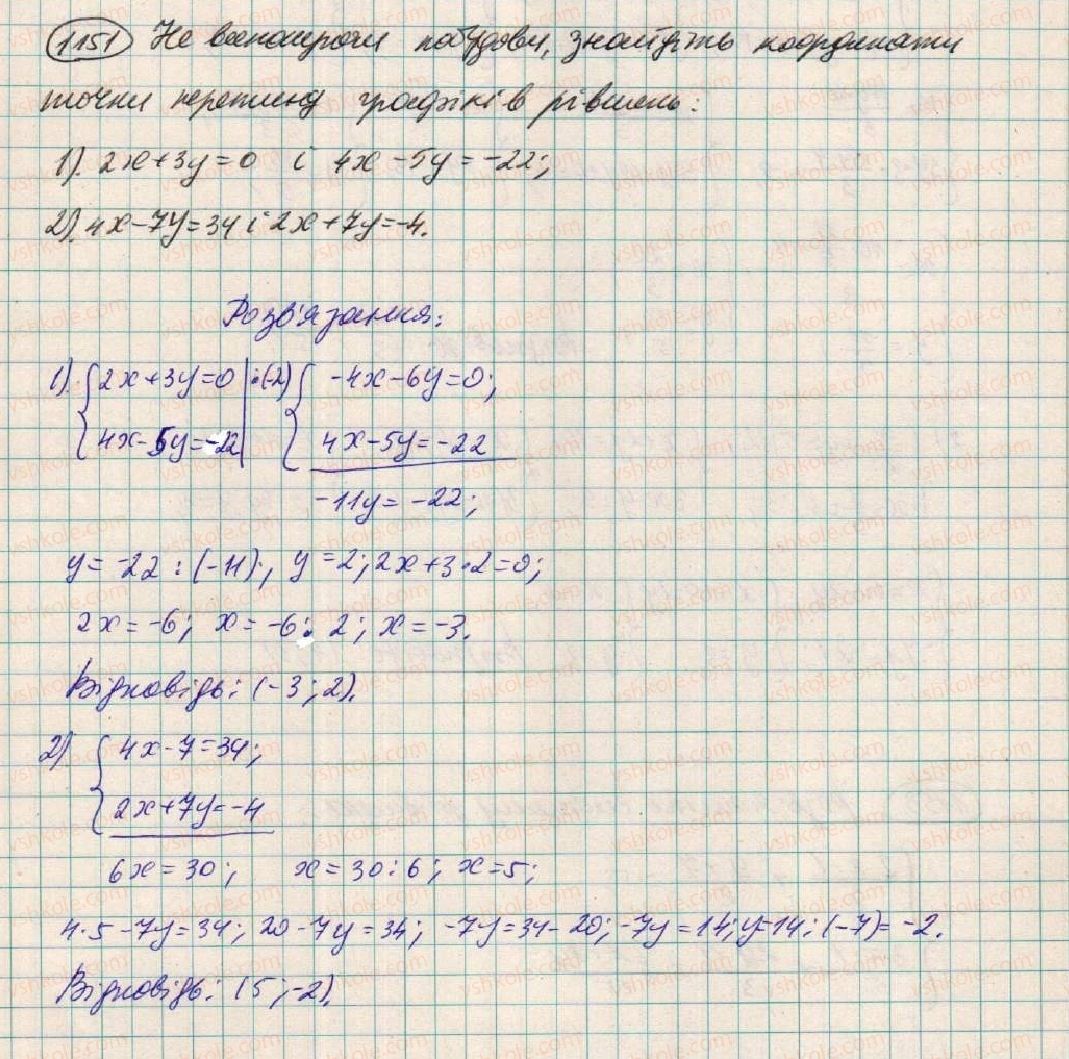 1151 Не виконуючи побудови, знайдіть координати
точки перетину графіків рівнянь:
1). 2x+3y=0 і 4x-5y=-22;
2). 4x-7y=34 і 2x+7y=-4.
Розв'язання:
1). {2x+3y=0 |·(-2) { -4x-6y=0;
4x-5y=-22 | 4x-5y=-22
-11y=-22;
y=-22:(-11); y=2; 2x+3·2=0;
2x=-6; x=-6:2; x=-3.
Відповідь: (-3;2).
2) { 4x-7=34;
2x+7y=-4
6x=30; x=30:6; x=5;
4·5-7y=34; 20-7y=34; -7y=34-20; -7y=14; y=14:(-7)=-2.
Відповідь: (5;-2).